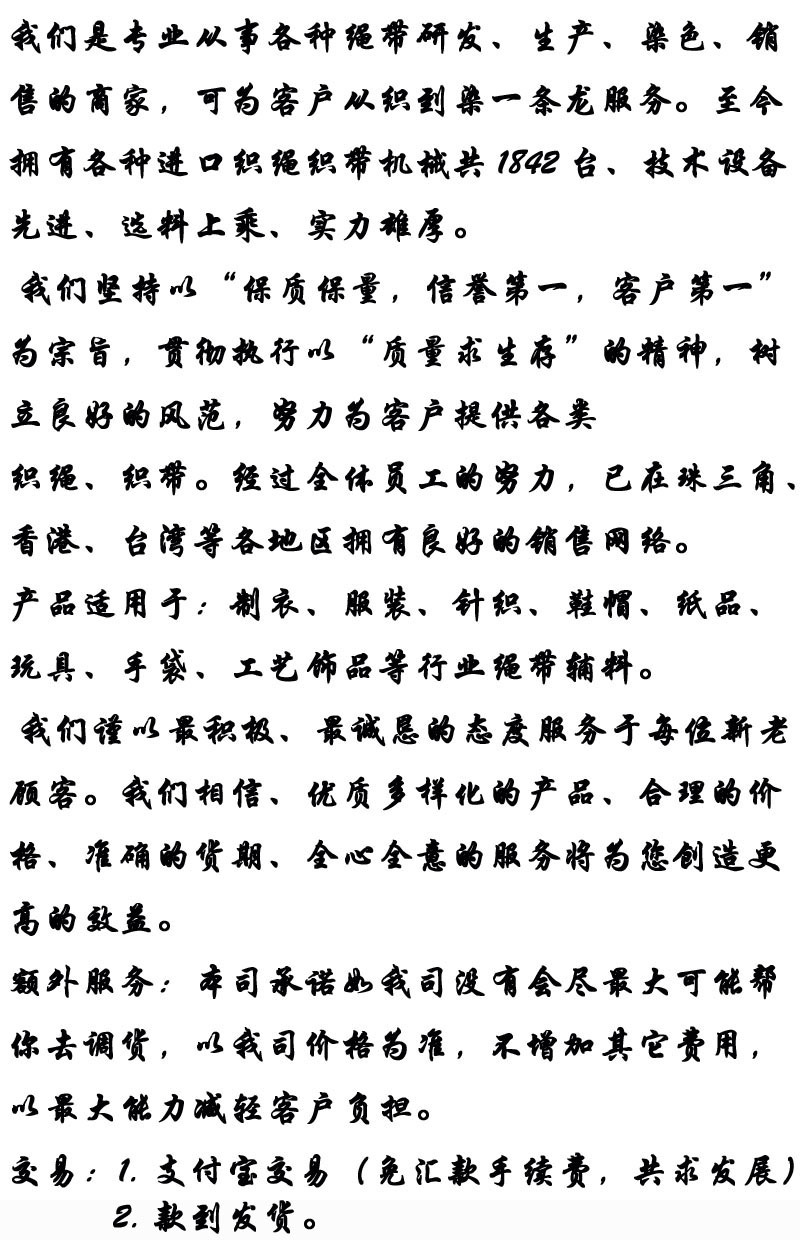 我们是专业从事各种绳带研发、生产、染色、销
售的商家，可为客户从织到染一条龙服务。至今
拥有各种进口织绳织带机械共1842台、技术设备
先进、选料上乘、实力雄厚。
我们坚持以“保质保量，信誉第一，客户第一”
为宗旨，贯彻执行以“质量求生存”的精神，树
立良好的风范，努力为客户提供各类
织绳、织带。经过全体员工的努力，已在珠三角、
香港、台湾等各地区拥有良好的销售网络。
产品适用于：制衣、服装、针织、鞋帽、纸品、
玩具、手袋、工艺饰品等行业绳带辅料。
我们谨以最积极、最诚恳的态度服务于每位新老
顾客。我们相信、优质多样化的产品、合理的价
格、准确的货期、全心全意的服务将为您创造更
高的效益。
额外服务：本司承诺如我司没有会尽最大可能帮
你去调货，以我司价格为准，不增加其它费用，
以最大能力减轻客户负担。
交易：1. 支付宝交易（免汇款手续费，共求发展）
2. 款到发货。